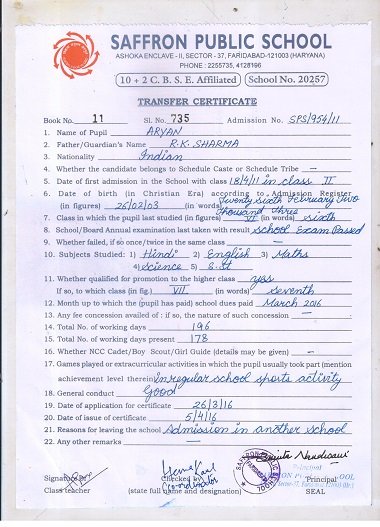 SAFFRON PUBLIC SCHOOL
ASHOKA ENCLAVE - II, SECTOR - 37, FARIDABAD-121003 (HARYANA)
PHONE : 2255735, 4128196
10 + 2 C. B. S. E. Affiliated School No. 20257
TRANSFER CERTIFICATE
Book No. 11 Sl. No. 735 Admission No. SPS/954/11
1. Name of Pupil ARYAN
2. Father/Guardian's Name R.K. SHARMA
3. Nationality Indian
4. Whether the candidate belongs to Schedule Caste or Schedule Tribe —
5. Date of first admission in the School with class 18/4/11 in class II
6. Date of birth (in Christian Era) according to Admission Register
(in figures) 26/02/03 (in words) Twenty sixth February Two
thousand three
7. Class in which the pupil last studied (in figures) VI (in words) sixth
8. School/Board Annual examination last taken with result School Exam Passed
9. Whether failed, if so once/twice in the same class —
10. Subjects Studied: 1) Hindi 2) English 3) Maths
4) Science 5) S.St
11. Whether qualified for promotion to the higher class yes
If so, to which class (in fig.) VII (in words) seventh
12. Month up to which the (pupil has paid) school dues paid March 2016
13. Any fee concession availed of : if so, the nature of such concession —
14. Total No. of working days 196
15. Total No. of working days present 178
16. Whether NCC Cadet/Boy Scout/Girl Guide (details may be given) —
17. Games played or extracurricular activities in which the pupil usually took part (mention
achievement level therein In regular school sports activity
18. General conduct Good
19. Date of application for certificate 26/3/16
20. Date of issue of certificate 5/4/16
21. Reasons for leaving the school Admission in another school
22. Any other remarks —
Signature of Checked by Principal
Class teacher (state full name and designation) SEAL